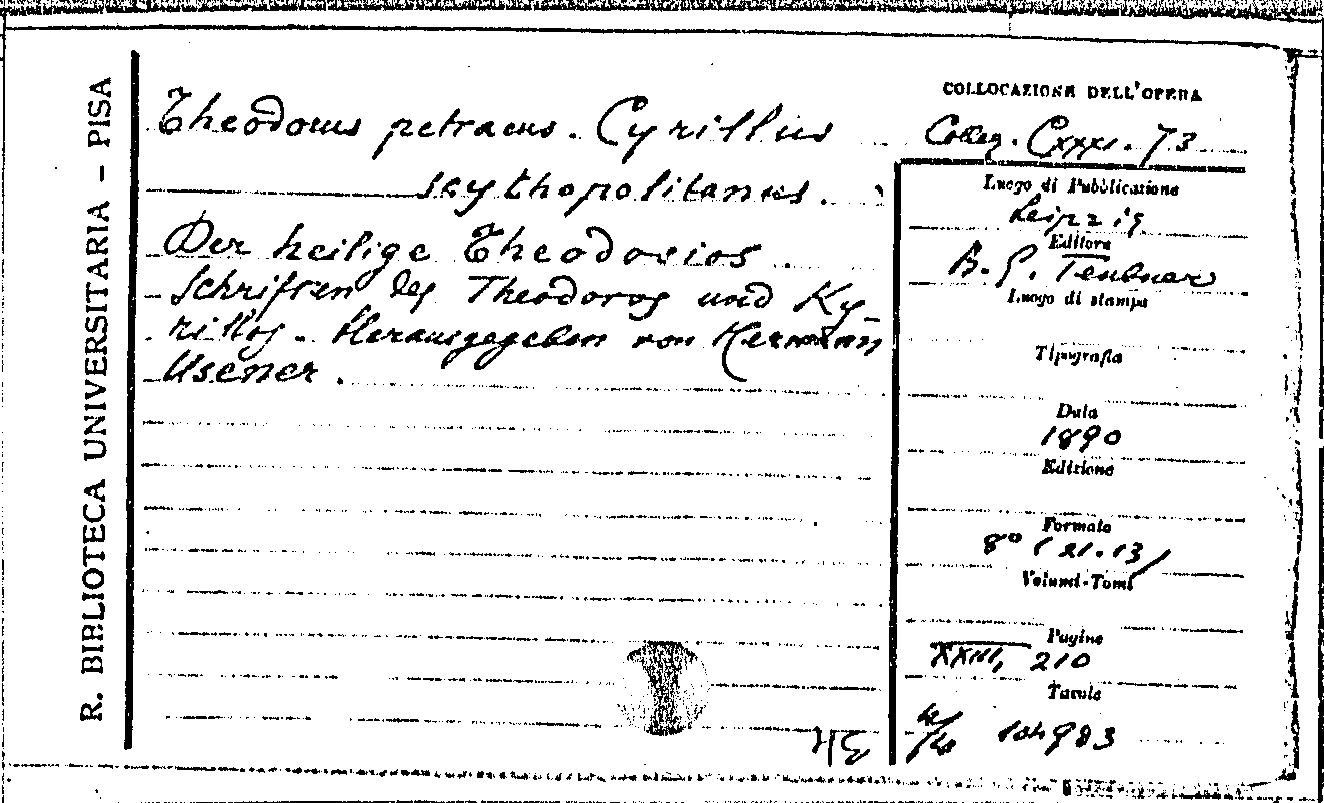 R. BIBLIOTECA UNIVERSITARIA - PISA
Theodorus petraeus. Cyrillus
scythopolitanus.
Der heilige Theodosios.
Schriften des Theodoros und Ky-
rillos. Herausgegeben von Hermann
Usener.
COLLOCAZIONE DELL'OPERA
Collez. CXXXI. 73
Luogo di Pubblicazione
Leipzig
Editore
B. G. Teubner
Luogo di stampa
Tipografia
Data
1890
Edizione
Formato
8° (21.13)
Volumi-Tomi
Pagine
XXIII, 210
Tavole
104983